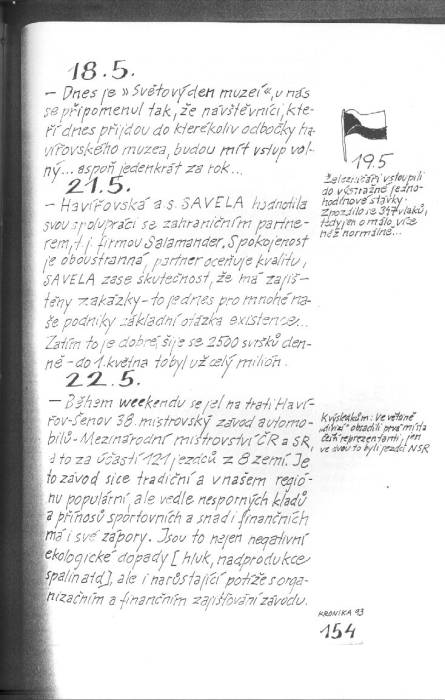 18.5.
– Dnes je »Světový den muzeí«, u nás
se připomenul tak, že návštěvníci, kte-
ří dnes přijdou do kterékoliv odbočky ha-
vířovského muzea, budou mít vstup vol-
ný... aspoň jedenkrát za rok...
19.5
Železničáři vstoupili
do výstražné jedno-
hodinové stávky.
Zpozdilo se 347 vlaků,
tedy jen o málo více
než normálně...
21.5.
– Havířovská a.s. SAVELA hodnotila
svou spolupráci se zahraničním partne-
rem, t.j. firmou Salamander. Spokojenost
je oboustranná, partner oceňuje kvalitu,
SAVELA zase skutečnost, že má zajiš-
těny zakázky – to je dnes pro mnohé na-
še podniky základní otázka existence...
Zatím to je dobré, šije se 2500 svršků den-
ně – do 1. května to byl už celý milión.
22.5.
– Během weekendu se jel na trati Haví-
řov-Šenov 38. mistrovský závod automo-
bilů – Mezinárodní mistrovství ČR a SR,
a to za účasti 121 jezdců z 8 zemí. Je
to závod sice tradiční a v našem regió-
nu populární, ale vedle nesporných kladů
a přínosů sportovních a snad i finančních
má i své zápory. Jsou to nejen negativní
ekologické dopady [hluk, nadprodukce
spalin atd], ale i narůstající potíže s orga-
nizačním a finančním zajišťování závodu.
K výsledkům: Ve většině
„divizí“ obsadili prvá místa
čeští reprezentanti, jen
ve dvou to byli jezdci NSR
KRONIKA 93
154